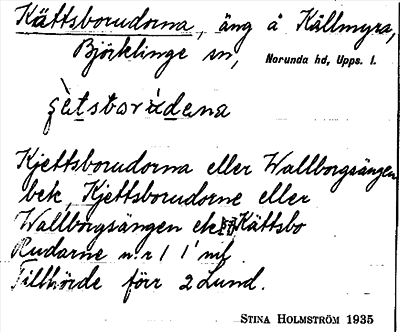 Kättsborudorna, äng å Källmyra,
Björklinge sn, Norunda hd, Upps. l.
Kjettsborudorna eller Wallborgsängen
bek Kjettsborudorne eller
Wallborgsängen ek Kättsbo
Rudarne n:r 1 1' ml
Tillhörde förr 2 Lund.
STINA HOLMSTRÖM 1935